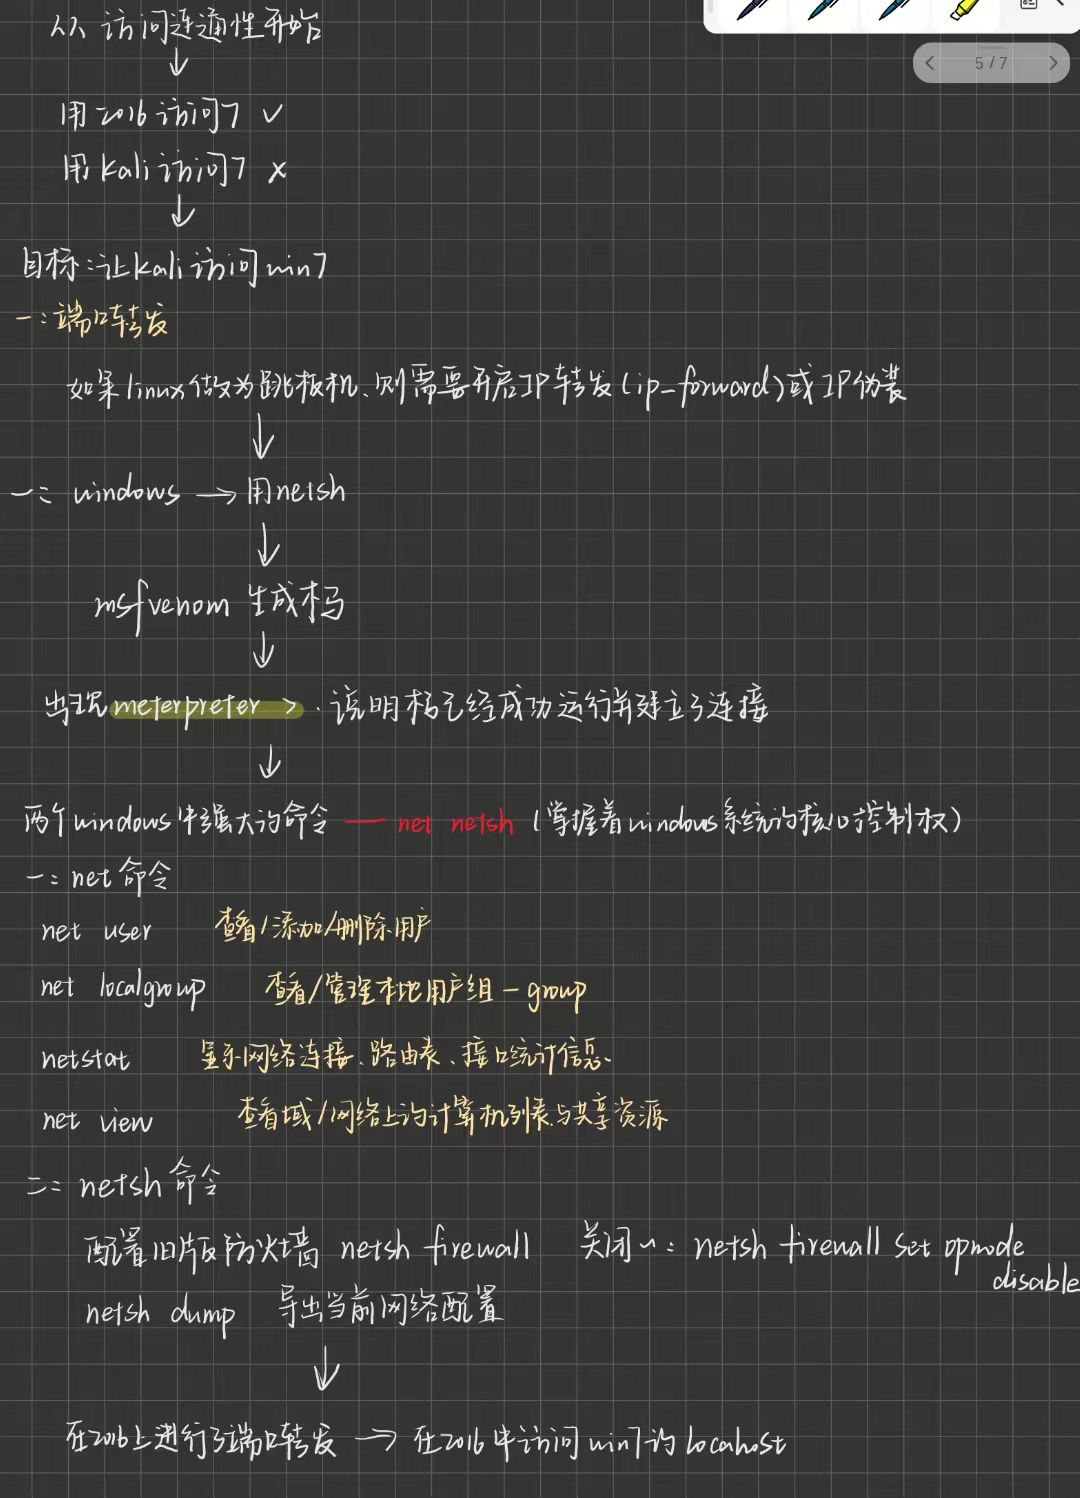 从访问连通性开始
5/7
↓
用2016访问7 ✓
用kali访问7 ×
↓
目标:让kali访问win7
一:端口转发
如果linux做为跳板机、则需要开启IP转发(ip_forward)或IP伪装
↓
一: windows → 用netsh
↓
msfvenom 生成木马
↓
出现meterpreter > . 说明木马已经成功运行并建立了连接
↓
两个windows中强大的命令 — net netsh (掌握着windows系统的核心控制权)
一: net命令
net user 查看/添加/删除用户
net localgroup 查看/管理本地用户组-group
netstat 显示网络连接、路由表、接口统计信息、
net view 查看域/网络上的计算机列表与共享资源
二: netsh命令
配置旧版防火墙 netsh firewall 关闭~: netsh firewall set opmode
disable
netsh dump 导出当前网络配置
↓
在2016上进行了端口转发 → 在2016中访问win7的locahost